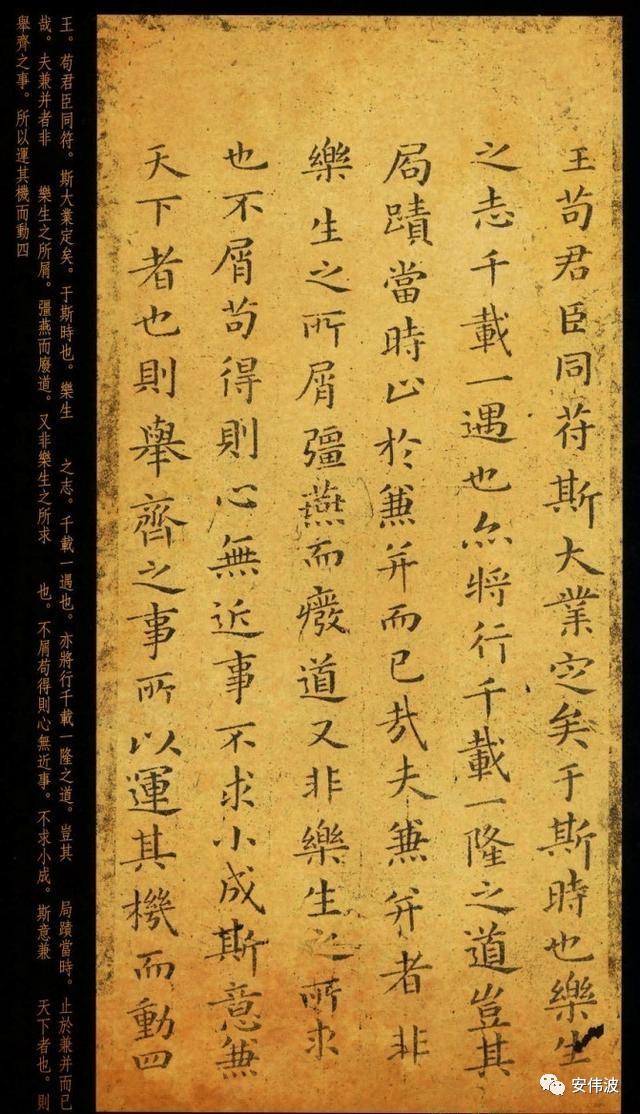 王苟君臣同苻斯大業定矣于斯時也樂生
之志千載一遇也亦將行千載一隆之道豈其
局蹟當時止於兼并而已哉夫兼并者非
樂生之所屑彊燕而癈道又非樂生之所求
也不屑苟得則心無近事不求小成斯意兼
天下者也則舉齊之事所以運其機而動四
王。苟君臣同符。斯大業定矣。于斯時也。樂生 之志。千載一遇也。亦將行千載一隆之道。豈其 局蹟當時。止於兼并而已
哉。夫兼并者非 樂生之所屑。彊燕而廢道。又非樂生之所求 也。不屑苟得則心無近事。不求小成。斯意兼 天下者也。則
舉齊之事。所以運其機而動四
安伟波